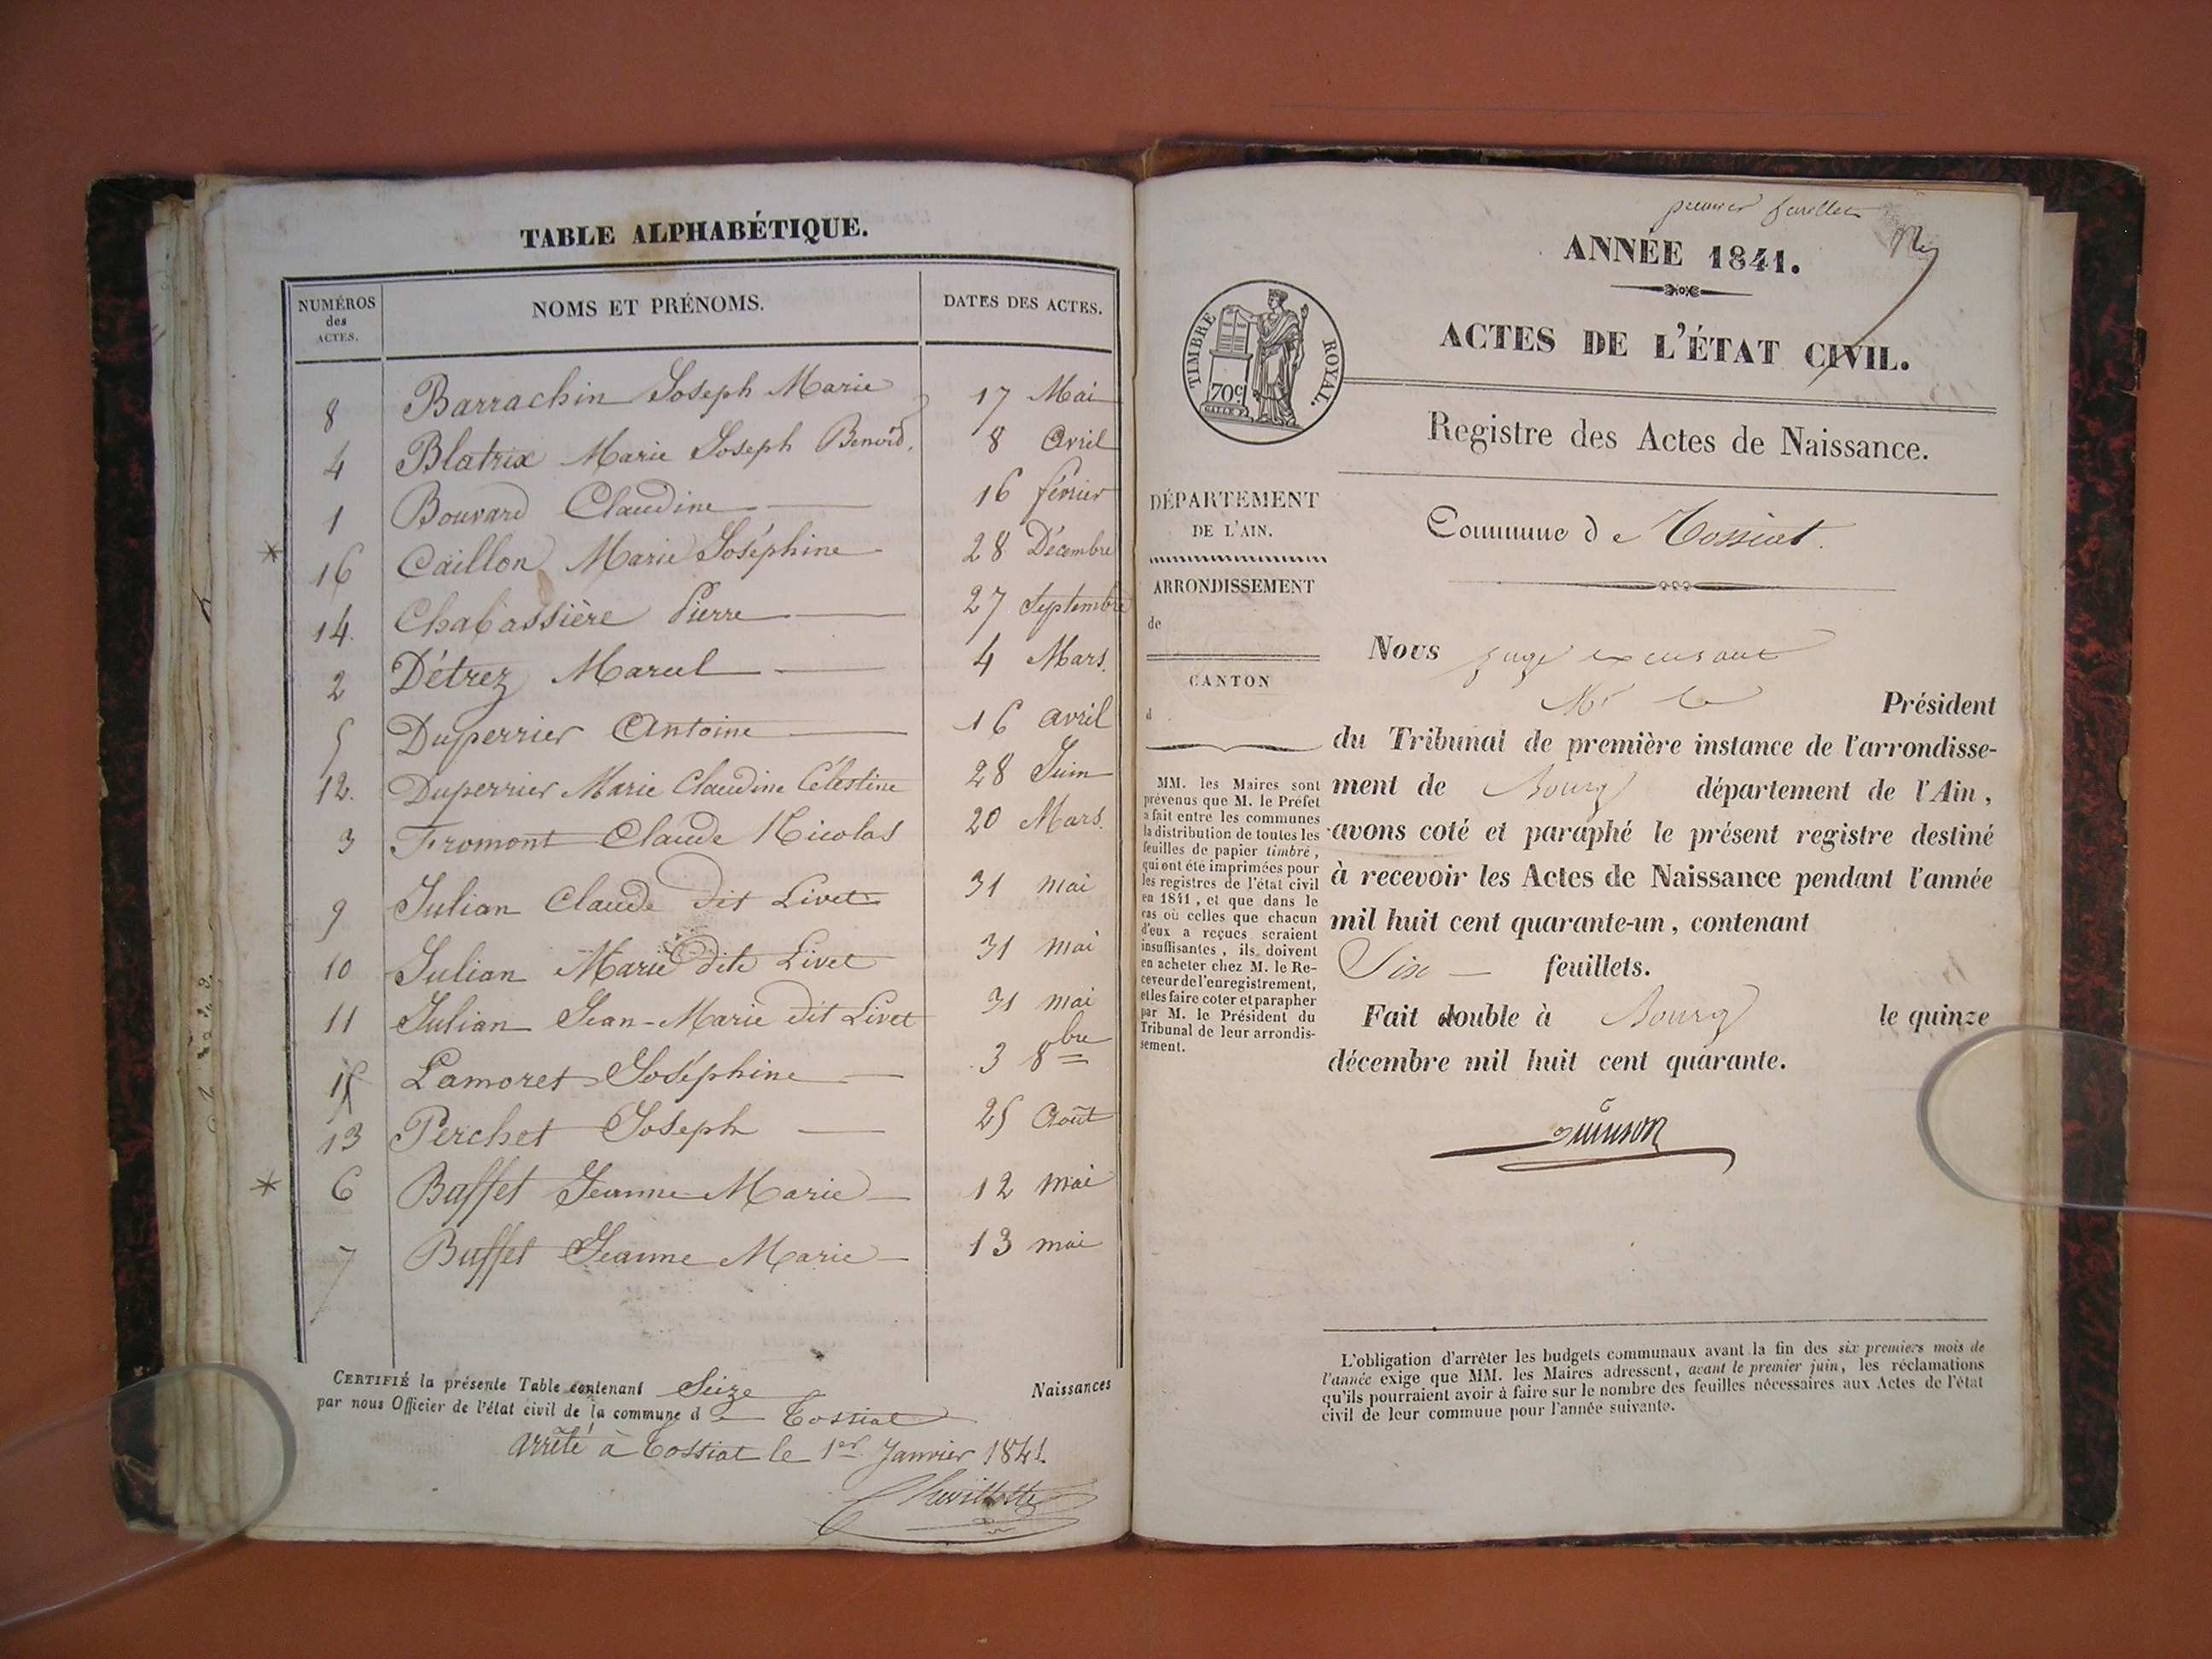 TABLE ALPHABÉTIQUE.
NUMÉROS des ACTES. NOMS ET PRÉNOMS. DATES DES ACTES.
8 Barrachin Joseph Marie 17 Mai
4 Blatrix Marie Joseph Benoid. 8 Avril
1 Bouvard Claudine 16 février
* 16 Caillon Marie Joséphine 28 Décembre
14. Chabassière Pierre 27 Septembre
2 Détrez Marcel 4 Mars.
5 Duperrier Antoine 16 avril
12. Duperrier Marie Claudine Célestine 28 Juin
3 Fromont Claude Nicolas 20 Mars.
9 Julian Claude dit Livet 31 mai
10 Julian Marie dite Livet 31 mai
11 Julian Jean-Marie dit Livet 31 mai
15 Lamoret Joséphine 3 8bre
13 Perchet Joseph 25 Août
* 6 Baffet Jeanne Marie 12 mai
7 Buffet Jeanne Marie 13 mai
CERTIFIÉ la présente Table contenant Seize Naissances
par nous Officier de l'état civil de la commune d e Tossiat
arrêté à Tossiat le 1er Janvier 1841.
Chevillotte
premier feuillet
ANNÉE 1841.
ACTES DE L'ÉTAT CIVIL.
TIMBRE ROYAL.
70c
Registre des Actes de Naissance.
DÉPARTEMENT
DE L'AIN.
ARRONDISSEMENT
de
CANTON
d
MM. les Maires sont
prévenus que M. le Préfet
a fait entre les communes
la distribution de toutes les
feuilles de papier timbré,
qui ont été imprimées pour
les registres de l'état civil
en 1841, et que dans le
cas où celles que chacun
d'eux a reçues seraient
insuffisantes, ils doivent
en acheter chez M. le Re-
ceveur de l'enregistrement,
et les faire coter et parapher
par M. le Président du
Tribunal de leur arrondis-
sement.
Commune d e Tossiat.
Nous juge excusant
Mr le Président
du Tribunal de première instance de l'arrondisse-
ment de Bourg département de l'Ain,
avons coté et paraphé le présent registre destiné
à recevoir les Actes de Naissance pendant l'année
mil huit cent quarante-un, contenant
Six feuillets.
Fait double à Bourg le quinze
décembre mil huit cent quarante.
L'obligation d'arrêter les budgets communaux avant la fin des six premiers mois de
l'année exige que MM. les Maires adressent, avant le premier juin, les réclamations
qu'ils pourraient avoir à faire sur le nombre des feuilles nécessaires aux Actes de l'état
civil de leur commune pour l'année suivante.